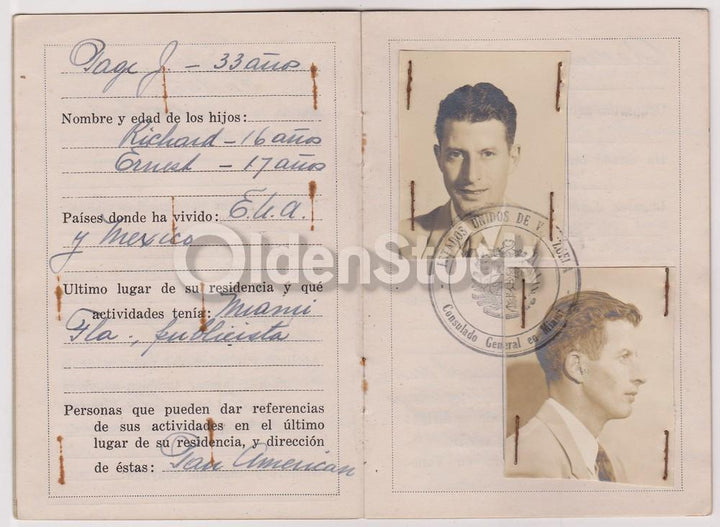 Page J. - 33 años
Nombre y edad de los hijos:
Richard - 16 años
Ernest - 17 años
Países donde ha vivido: E.U.A.
y Mexico
Ultimo lugar de su residencia y qué
actividades tenía: Miami
Fla., publicista
Personas que pueden dar referencias
de sus actividades en el último
lugar de su residencia, y dirección
de éstas: Pan American
ESTADOS UNIDOS DE VENEZUELA
Consulado General en Miami
OldenStock